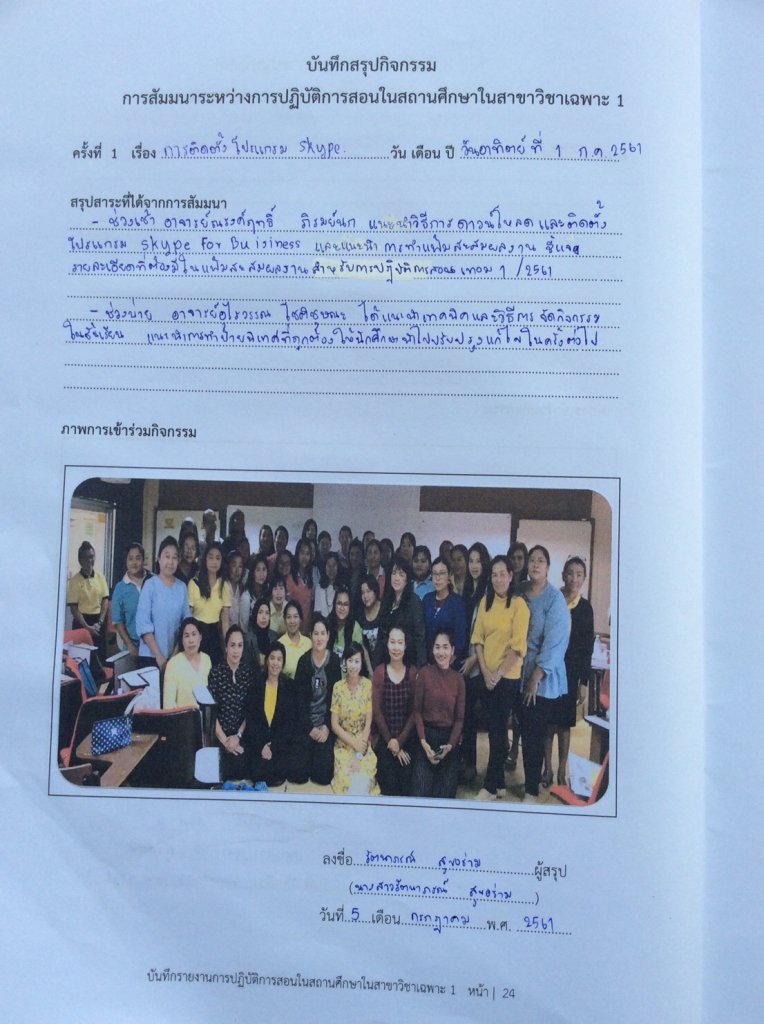 บันทึกสรุปกิจกรรม
การสัมมนาระหว่างการปฏิบัติการสอนในสถานศึกษาในสาขาวิชาเฉพาะ 1
ครั้งที่ 1 เรื่อง การติดตั้งโปรแกรม Skype. วัน เดือน ปี วันอาทิตย์ ที่ 1 ก.ค. 2561
สรุปสาระที่ได้จากการสัมมนา
- ช่วงเช้า อาจารย์ณรงค์ฤทธิ์ ภิรมย์นก แนะนำวิธีการดาวน์โหลด และติดตั้ง
โปรแกรม Skype For Buisiness และแนะนำ การทำแฟ้มสะสมผลงาน ชี้แจง
รายละเอียดที่ต้องมีในแฟ้มสะสมผลงาน สำหรับการปฏิบัติการสอน เทอม 1 /2561
- ช่วงบ่าย อาจารย์อุไรวรรณ ได้แนะนำเทคนิคและวิธีการ จัดกิจกรรม
ในชั้นเรียน แนะนำการทำป้ายนิเทศที่ถูกต้อง ให้นักศึกษานำไปปรับปรุงแก้ไขในครั้งต่อไป
ภาพการเข้าร่วมกิจกรรม
ลงชื่อ รัตนาภรณ์ สุขอร่าม ผู้สรุป
(นางสาวรัตนาภรณ์ สุขอร่าม)
วันที่ 5 เดือน กรกฎาคม พ.ศ. 2561
บันทึกรายงานการปฏิบัติการสอนในสถานศึกษาในสาขาวิชาเฉพาะ 1 หน้า | 24